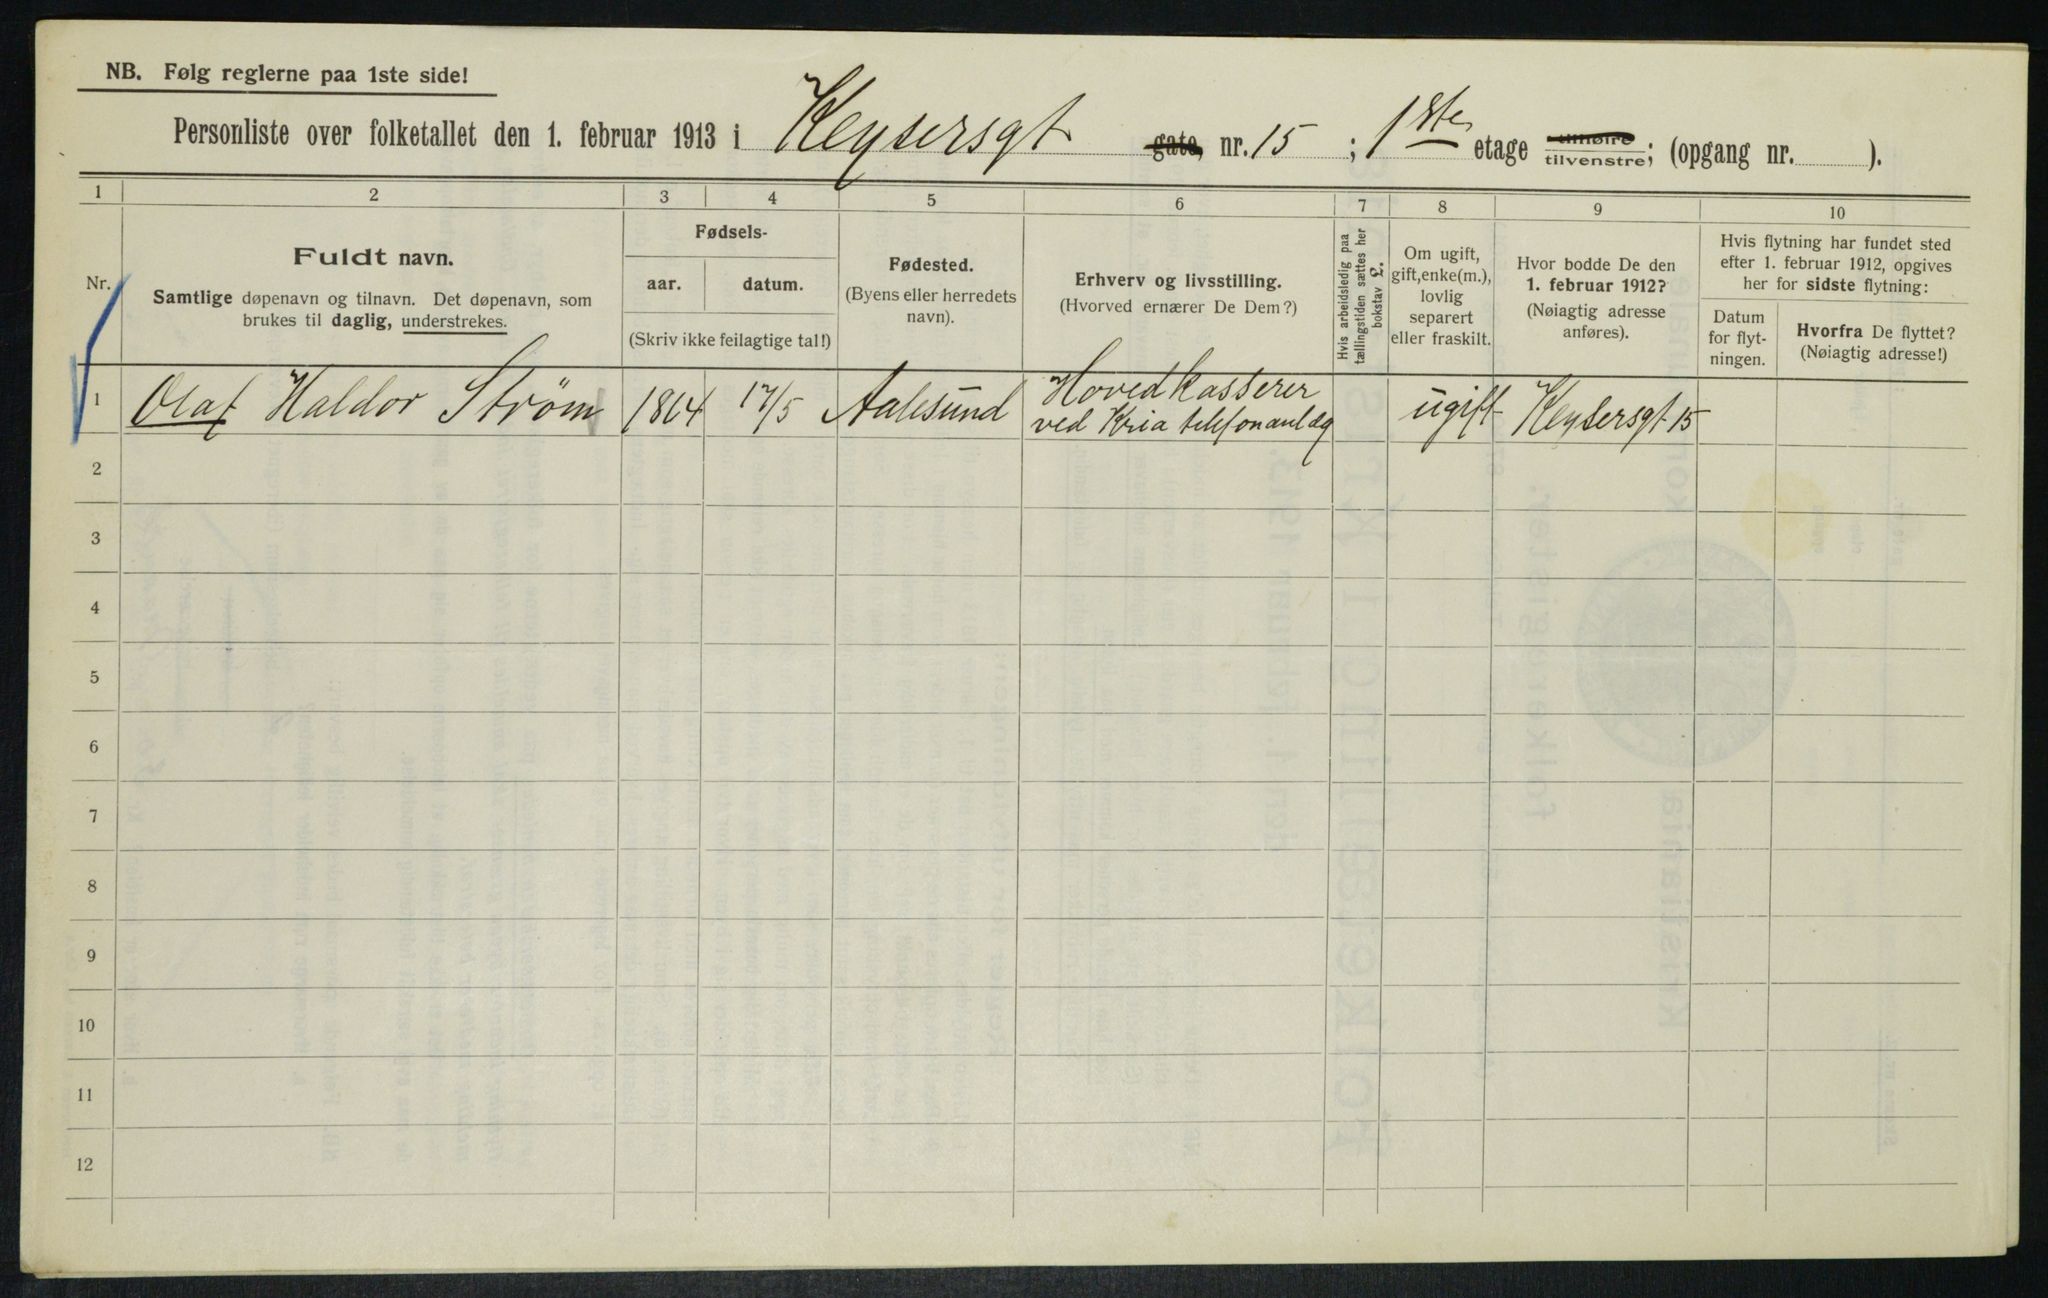 NB. Følg reglerne paa 1ste side!
Personliste over folketallet den 1. februar 1913 i Keysersgt gate, nr. 15; 1ste etage tilhøire tilvenstre; (opgang nr. ).
1 2 3 4 5 6 7 8 9 10
Nr.
Fuldt navn.
Samtlige døpenavn og tilnavn. Det døpenavn, som
brukes til daglig, understrekes.
Fødsels-
aar. datum.
(Skriv ikke feilagtige tal!)
Fødested.
(Byens eller herredets
navn).
Erhverv og livsstilling.
(Hvorved ernærer De Dem?)
Hvis arbeidsledig paa
tællingstiden sættes her
bokstav L.
Om ugift,
gift, enke(m.),
lovlig
separert
eller fraskilt.
Hvor bodde De den
1. februar 1912?
(Nøiagtig adresse
anføres).
Hvis flytning har fundet sted
efter 1. februar 1912, opgives
her for sidste flytning:
Datum
for flyt-
ningen.
Hvorfra De flyttet?
(Nøiagtig adresse!)
1 Olaf Haldor Strøm 1864 17/5 Aalesund Hovedkasserer
ved Kria telefonanlæg ugift Keysersgt 15
2
3
4
5
6
7
8
9
10
11
12